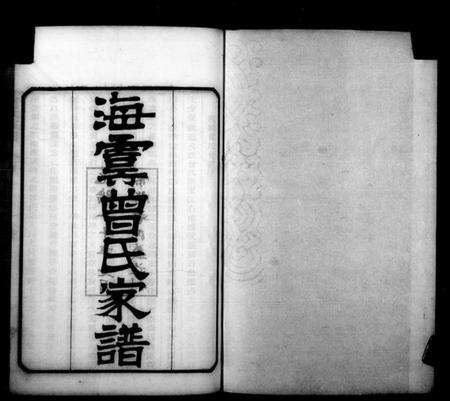 海虞曾氏家譜